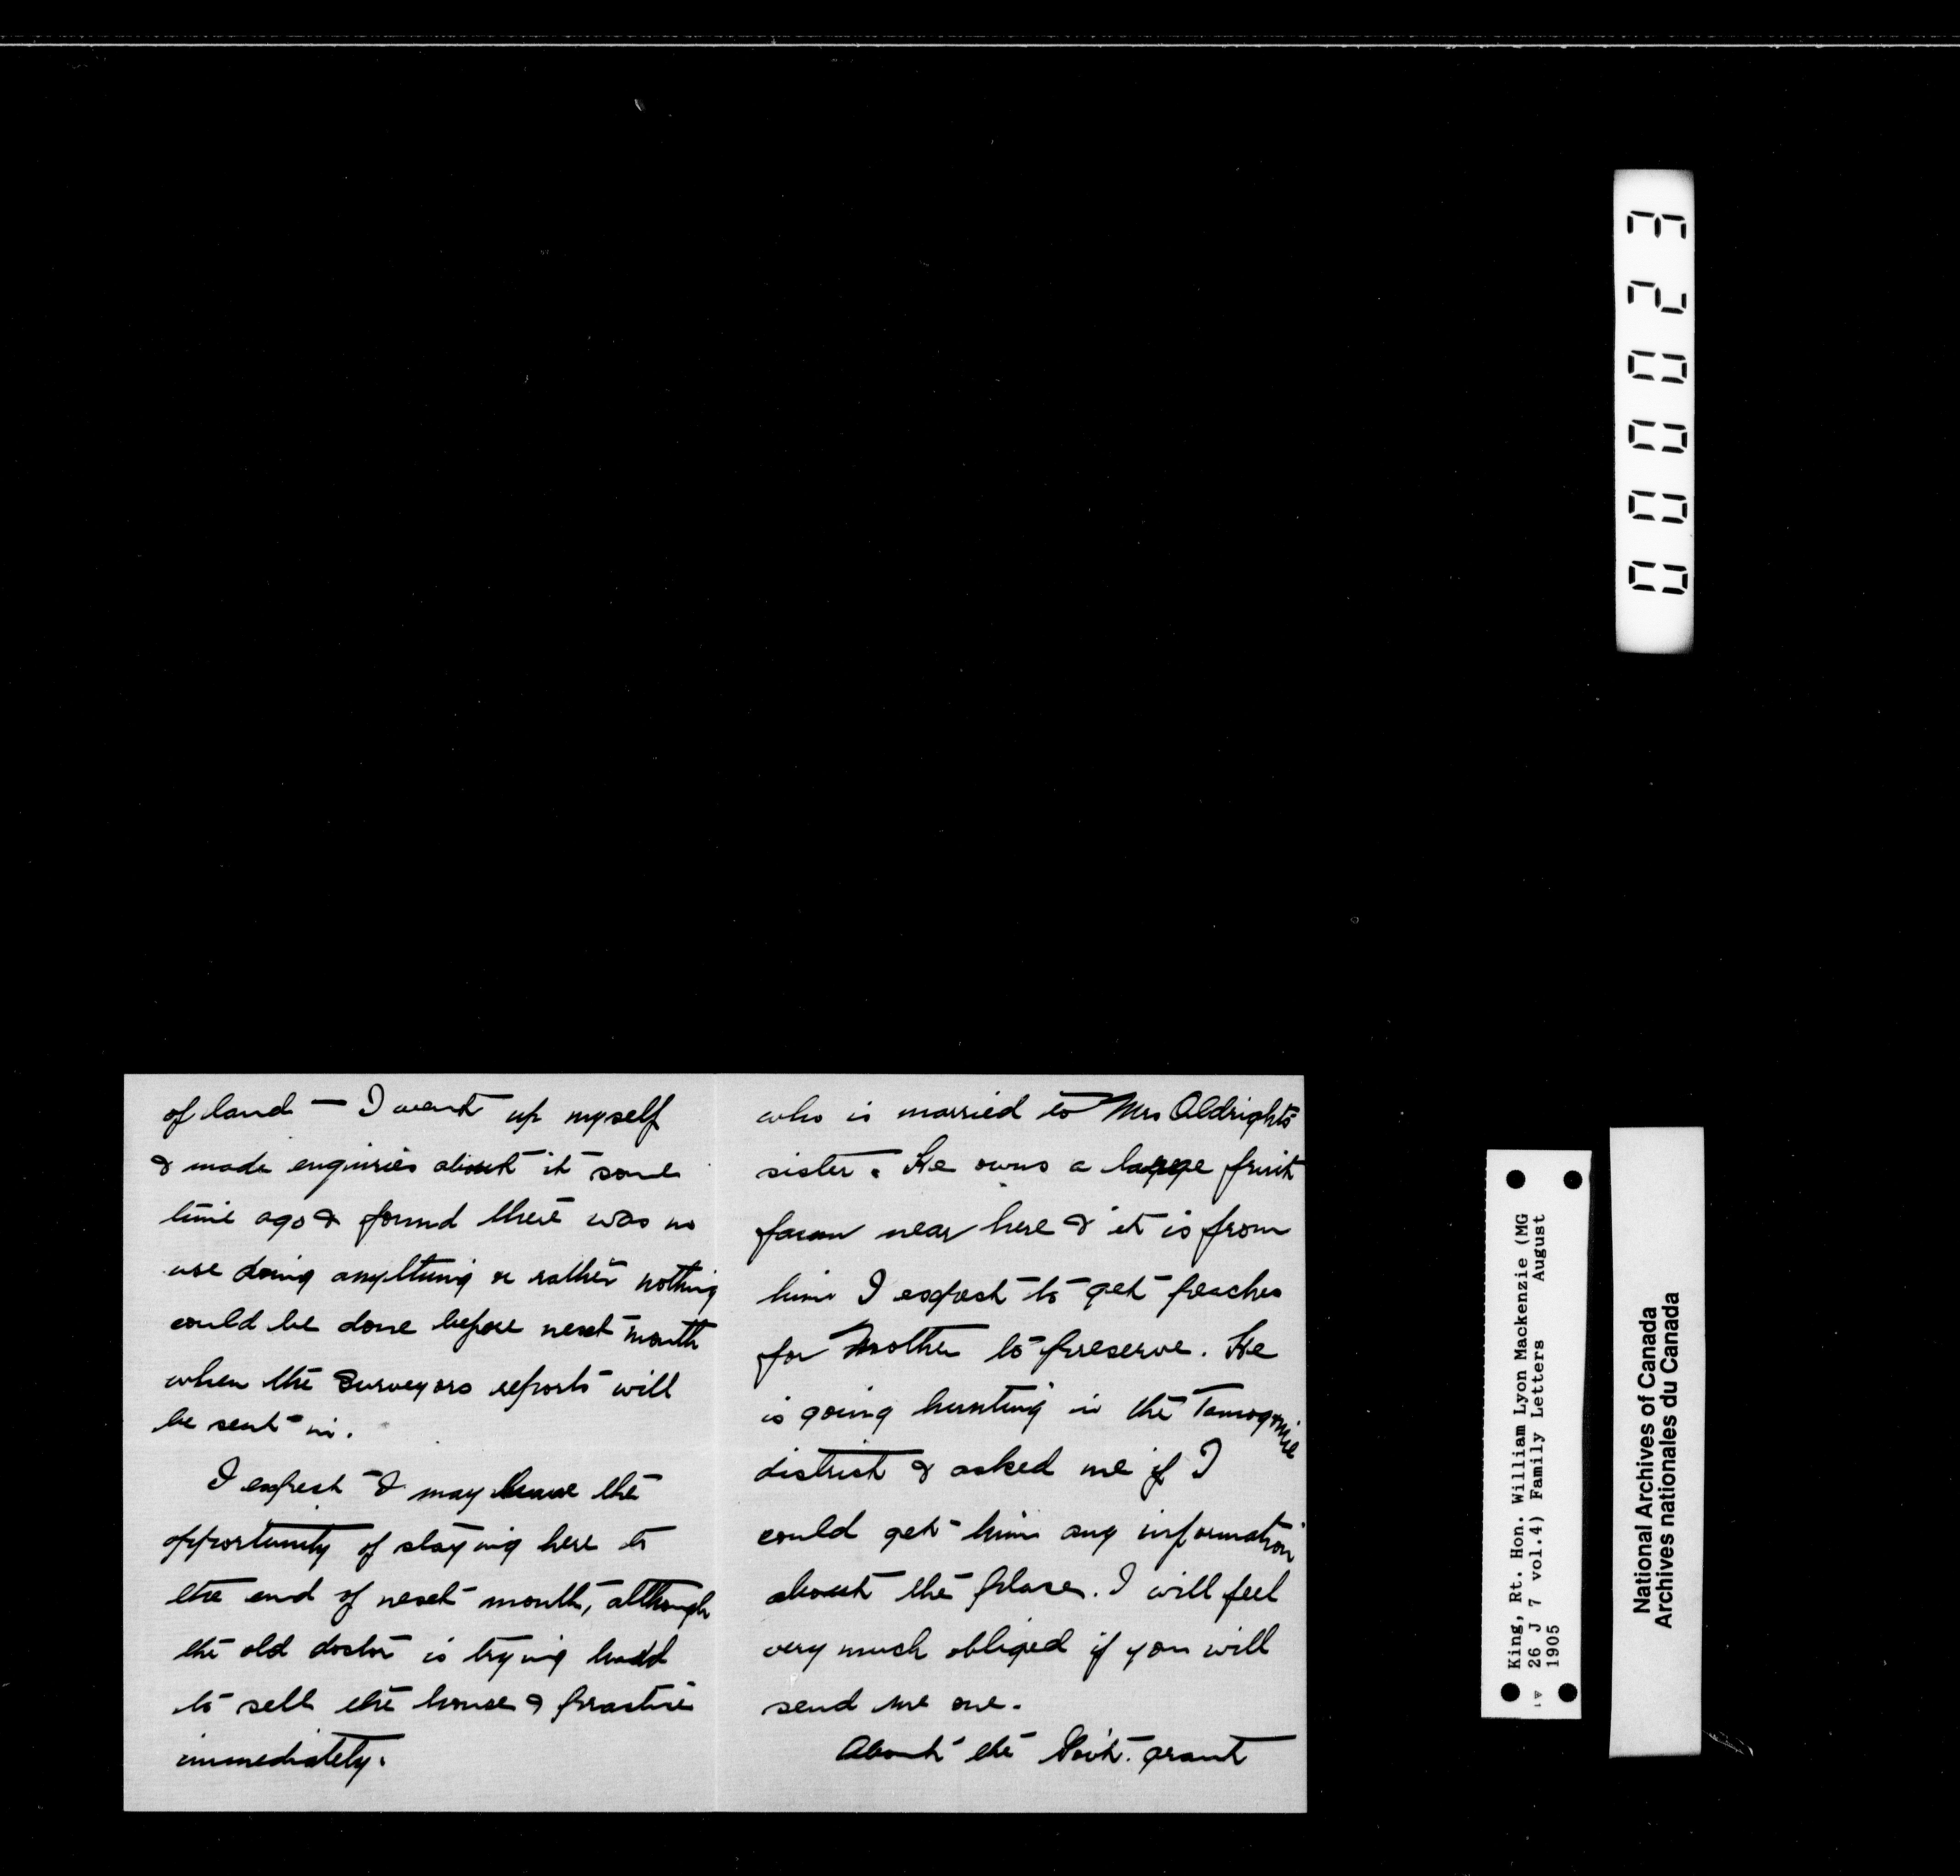 of land — I went up myself
& made enquiries about it some
time ago & found there was no
use doing anything or rather nothing
could be done before next month
when the Surveyors reports will
be sent in.
I expect I may have the
opportunity of staying here to
the end of next month, although
the old doctor is trying hard
to sell the house & practice
immediately.
who is married to Mrs Aldright's
sister. He owns a large fruit
farm near here & it is from
him I expect to get peaches
for Mother to preserve. He
is going hunting in the
district & asked me if I
could get him any information
about the place. I will feel
very much obliged if you will
send me one.
About the Gov't. grant
000023
King, Rt. Hon. William Lyon Mackenzie (MG
26 J 7 vol.4) Family Letters August
1905
National Archives of Canada
Archives nationales du Canada